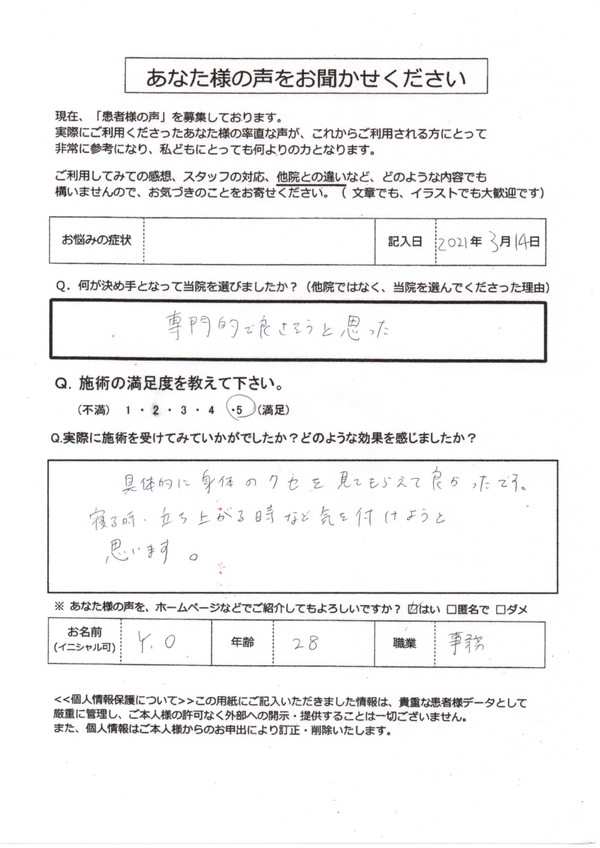 あなた様の声をお聞かせください
現在、「患者様の声」を募集しております。
実際にご利用くださったあなた様の率直な声が、これからご利用される方にとって
非常に参考になり、私どもにとっても何よりの力となります。
ご利用してみての感想、スタッフの対応、他院との違いなど、どのような内容でも
構いませんので、お気づきのことをお寄せください。（ 文章でも、イラストでも大歓迎です）
お悩みの症状 記入日 2021年 3月14日
Q．何が決め手となって当院を選びましたか？（他院ではなく、当院を選んでくださった理由）
専門的で良さそうと思った
Q. 施術の満足度を教えて下さい。
（不満） 1 ・ 2 ・ 3 ・ 4 ・5 （満足）
Q.実際に施術を受けてみていかがでしたか？どのような効果を感じましたか？
具体的に身体のクセを見てもらえて良かったです。
寝る時、立ち上がる時など気を付けようと
思います。
※ あなた様の声を、ホームページなどでご紹介してもよろしいですか？ ☑はい □匿名で □ダメ
お名前 Y.O 年齢 28 職業 事務
(イニシャル可)
<<個人情報保護について>>この用紙にご記入いただきました情報は、貴重な患者様データとして
厳重に管理し、ご本人様の許可なく外部への開示・提供することは一切ございません。
また、個人情報はご本人様からのお申出により訂正・削除いたします。